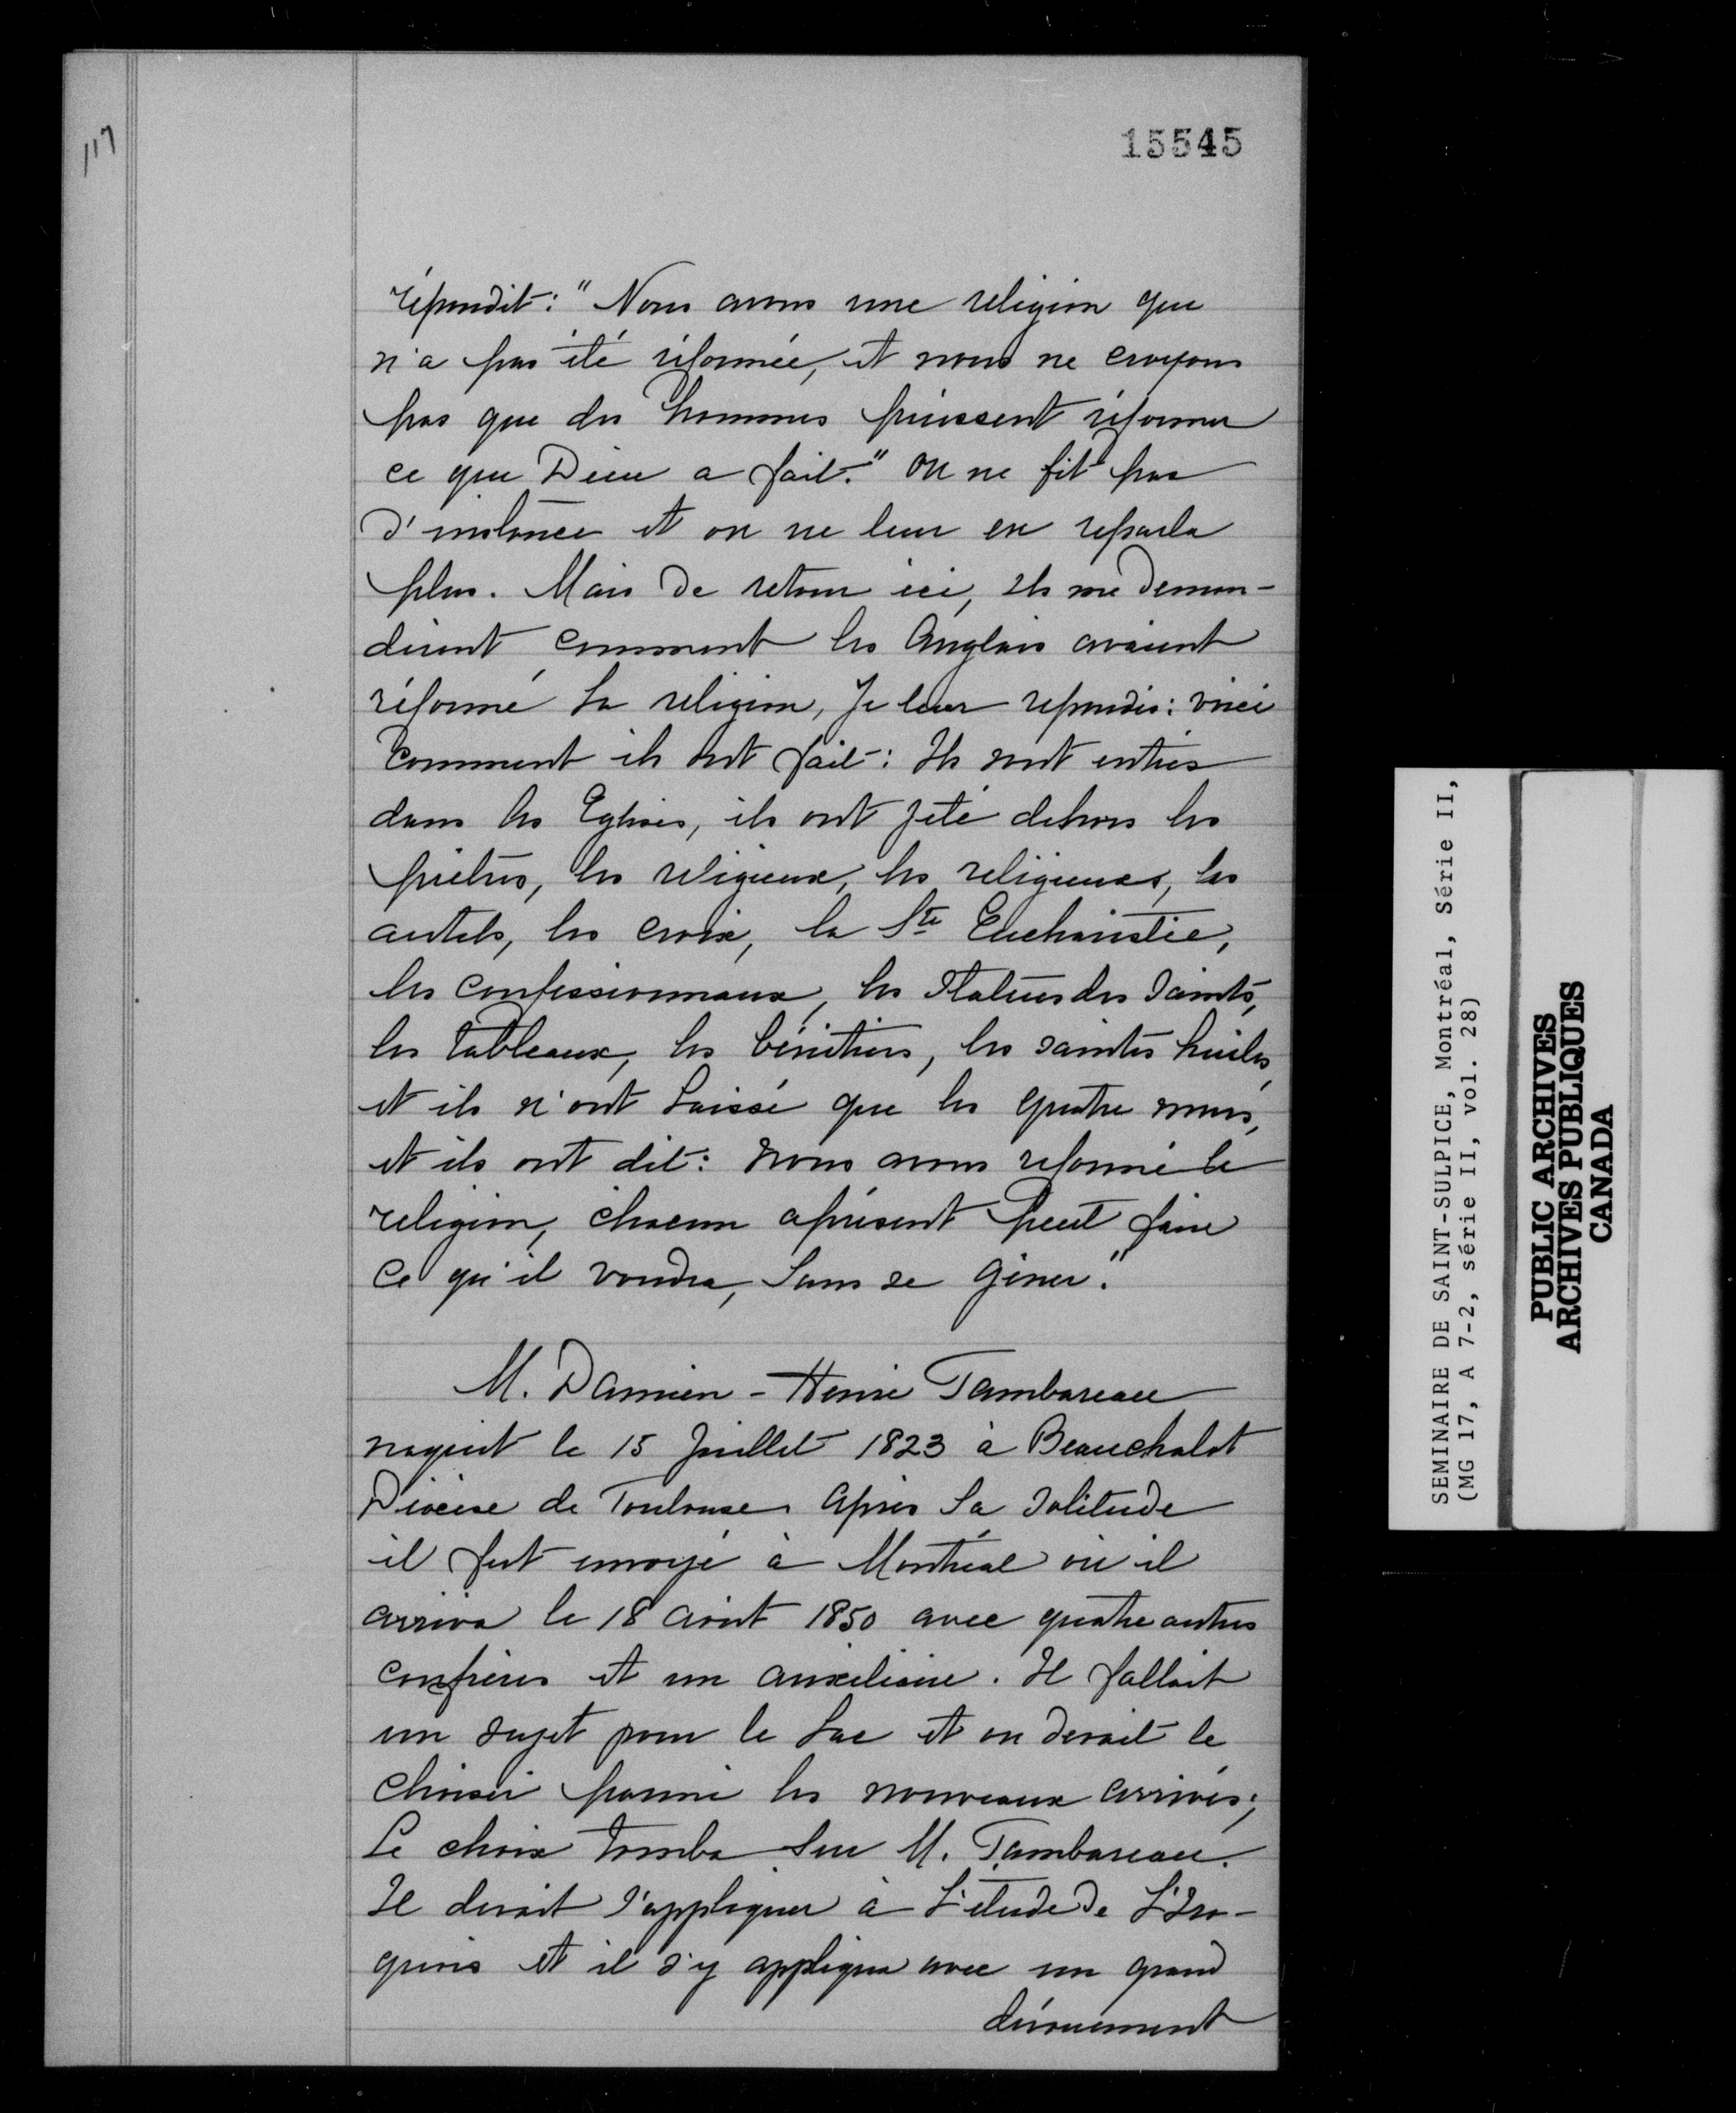 117
15545
répondit: "Nous avons une religion que
n'a pas été réformée, et nous ne croyons
pas que des hommes puissent réformer
ce que Dieu a fait." On ne fit pas
d'instance et on ne leur en reparla
plus. Mais de retour ici, ils me deman-
dèrent comment les Anglais avaient
réformé la religion, Je leur repondis: voici
comment ils ont fait: Ils sont entrés
dans les Eglises, ils ont jeté dehors les
prêtres, les religieux, les religieuses, les
autels, les croix, la Ste Eucharistie,
les confessionnaux, les Statues des Saints,
les tableaux, les bénitiers, les saintes huiles,
et ils n'ont laissé que les quatre murs,
et ils ont dit: nous avons reformé la
religion, chacun aprésent peut faire
ce qu'il voudra, sans se gêner."
M. Damien-Henri Tambareau
naquit le 15 Juillet 1823 à Beauchalot
Diocèse de Toulouse. Après sa Solitude
il fut envoyé à Montréal où il
arriva le 18 Août 1850 avec quatre autres
confrères et un auxiliaire. Il fallait
un sujet pour le Lac et on devait le
choisir parmi les nouveaux arrivés;
Le choix tomba sur M. Tambareau.
Il devait s'appliquer à l'étude de l'Iro-
quois et il s'y appliqua avec un grand
dévouement
SEMINAIRE DE SAINT-SULPICE, Montréal, Série II,
(MG 17, A 7-2, série II, vol. 28)
PUBLIC ARCHIVES
ARCHIVES PUBLIQUES
CANADA